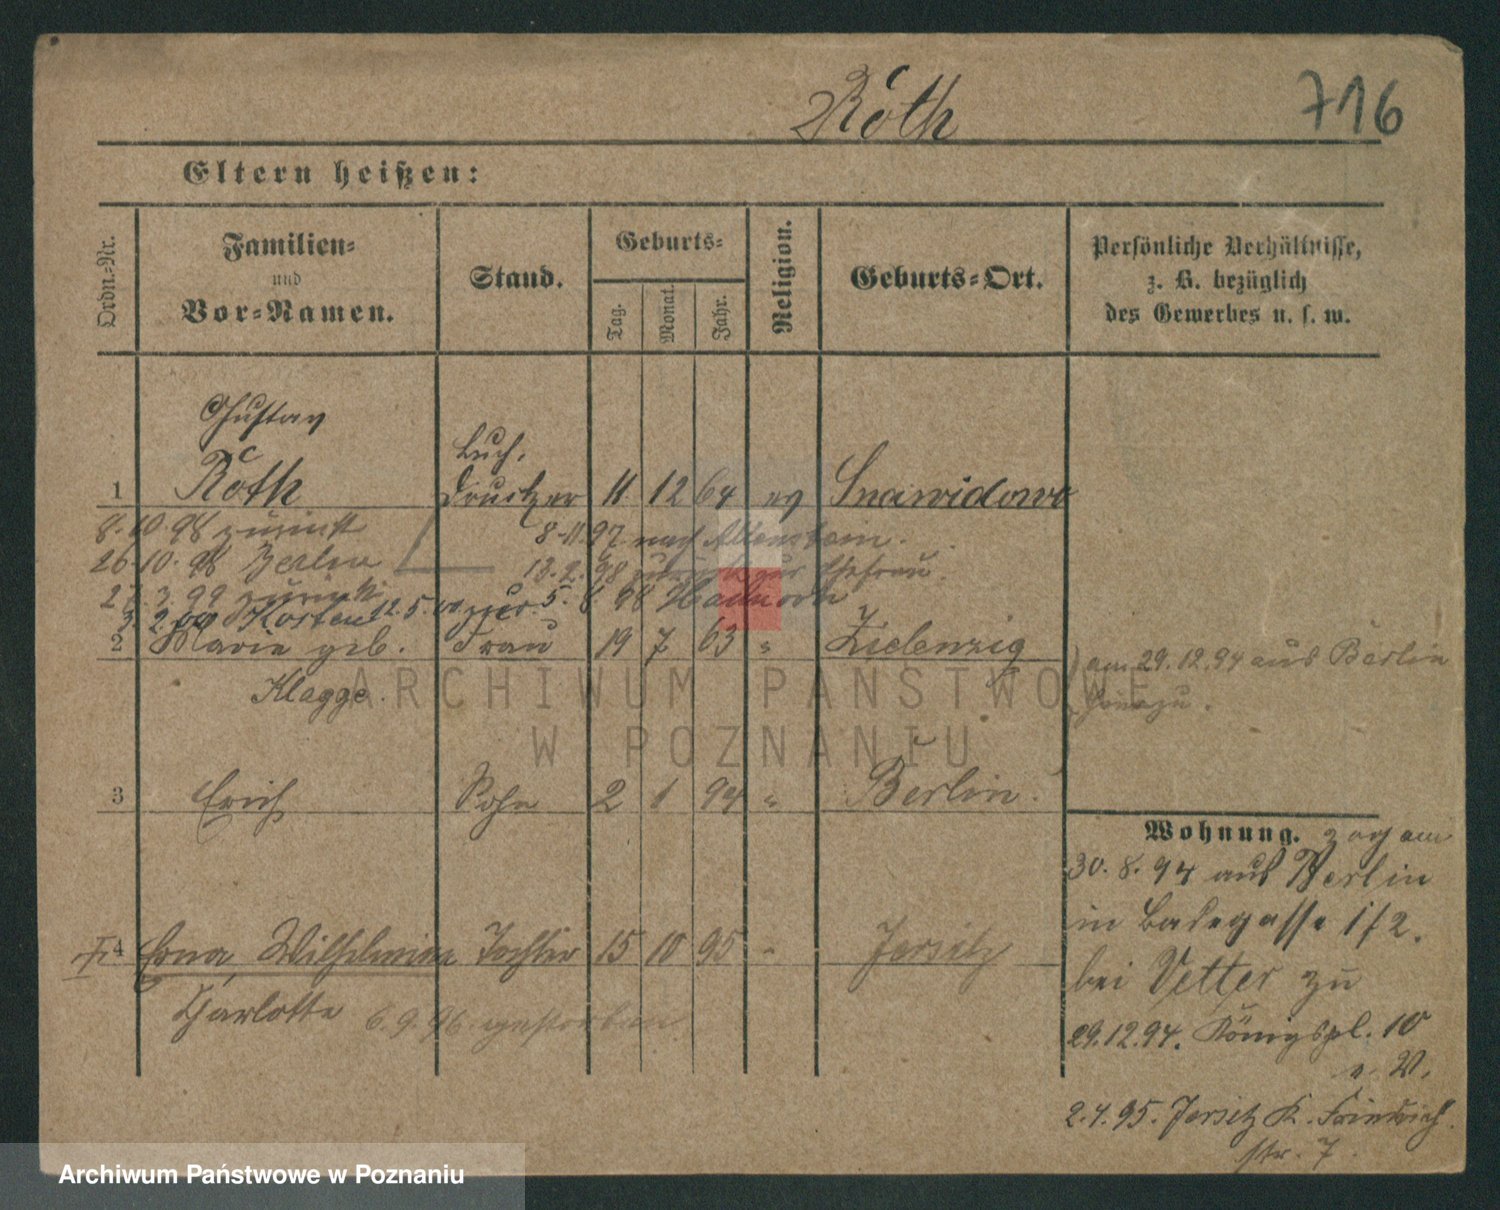 Röth
716
Eltern heißen:
Ordn.-Nr.
Familien-
und
Vor-Namen.
Stand.
Geburts-
Tag.
Monat.
Jahr.
Religion.
Geburts-Ort.
Persönliche Verhältnisse,
z. B. bezüglich
des Gewerbes u. s. w.
Gustav
Buch-
1 Röth Drucker 11 12 64 ev Snawidowo
8.10.98 zurück 8.11.97 nach Allenstein.
26.10.98 Berlin 13.2.98 zurück zur Ehefrau.
3.99 zurück 5. 8 98
2 Marie geb. Frau 19 7 63 " Zielenzig
Klagge.
am 29.12.94 aus Berlin
hinzu.
3 Erich Sohn 2 1 94 " Berlin.
Wohnung. zog am
30.8.94 aus Berlin
in Badegasse 1/2.
bei Vetter zu
4 Erna, Wilhelmine Tochter 15 10 95 " Jersitz
Charlotte 6.9.96 gestorben
29.12.94. Königspl. 10
2.4.95. Jersitz K. Friedrich
str. 7.
ARCHIWUM PAŃSTWOWE
W POZNANIU
Archiwum Państwowe w Poznaniu